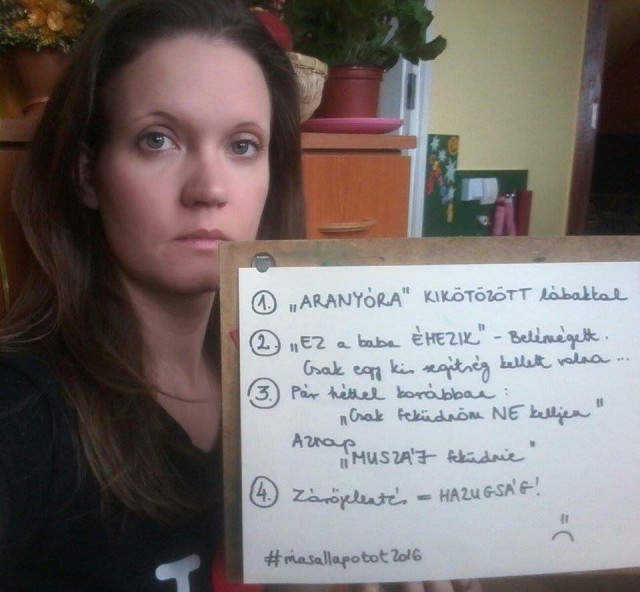 1. „ARANYÓRA" KIKÖTÖZÖTT lábakkal
2. „EZ a baba ÉHEZIK" - Belémégett.
Csak egy kis segítség kellett volna...
3. Pár héttel korábban:
„Csak feküdnöm NE kelljen"
Aznap
„MUSZÁJ feküdnie"
4. Zárójelentés = HAZUGSÁG!
#masallapotot2016